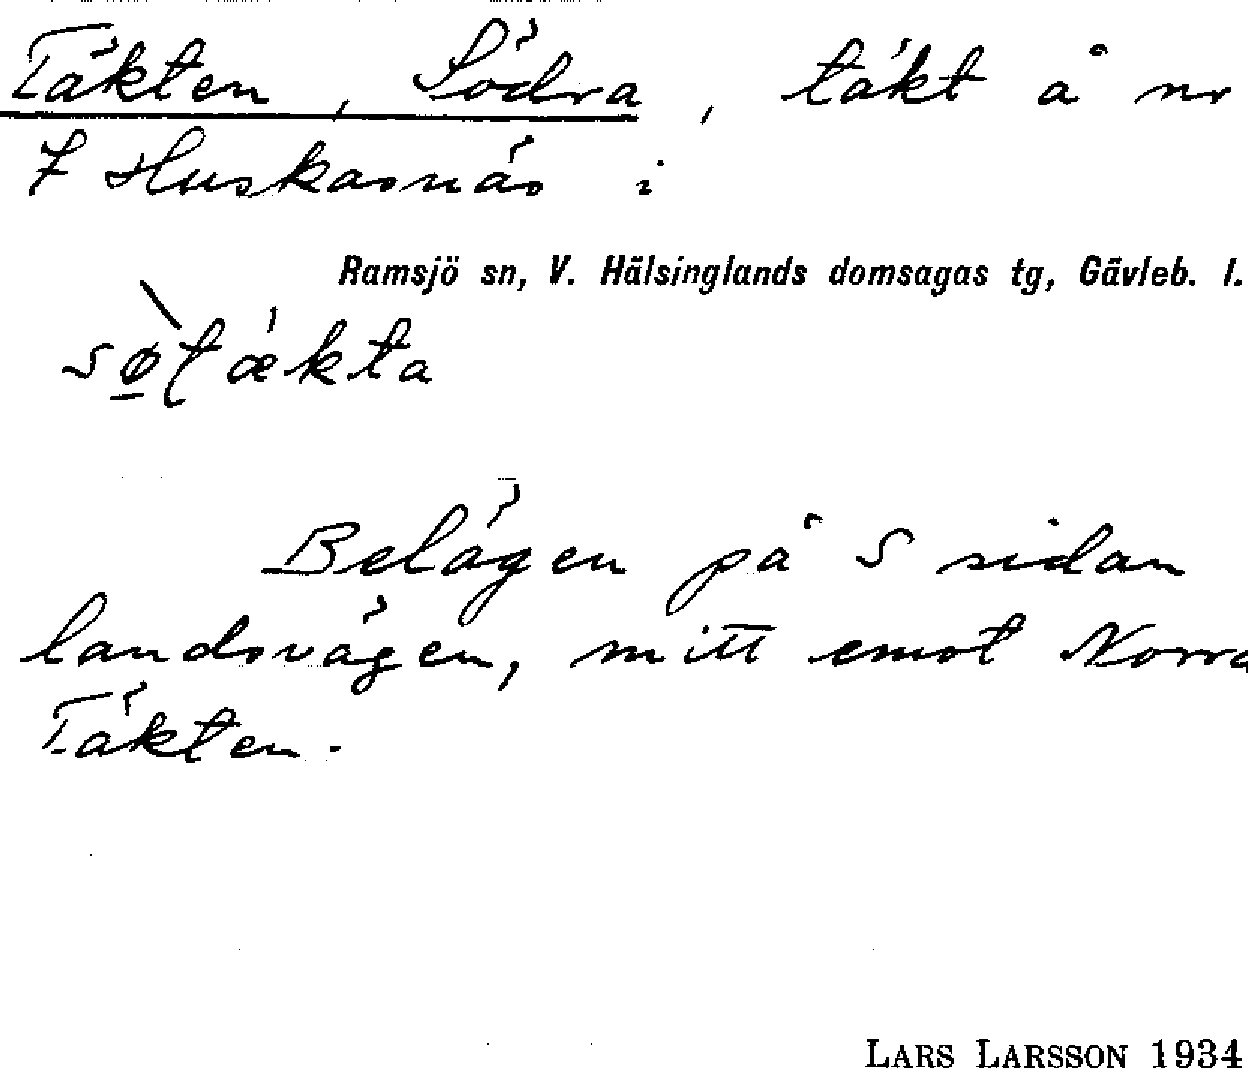 Täkten, Södra, täkt å nr
7 Huskasnäs i
Ramsjö sn, V. Hälsinglands domsagas tg, Gävleb. l.
sø̲̀tǽkta
Belägen på S sidan
landsvägen, mitt emot Norra
Täkten.
LARS LARSSON 1934